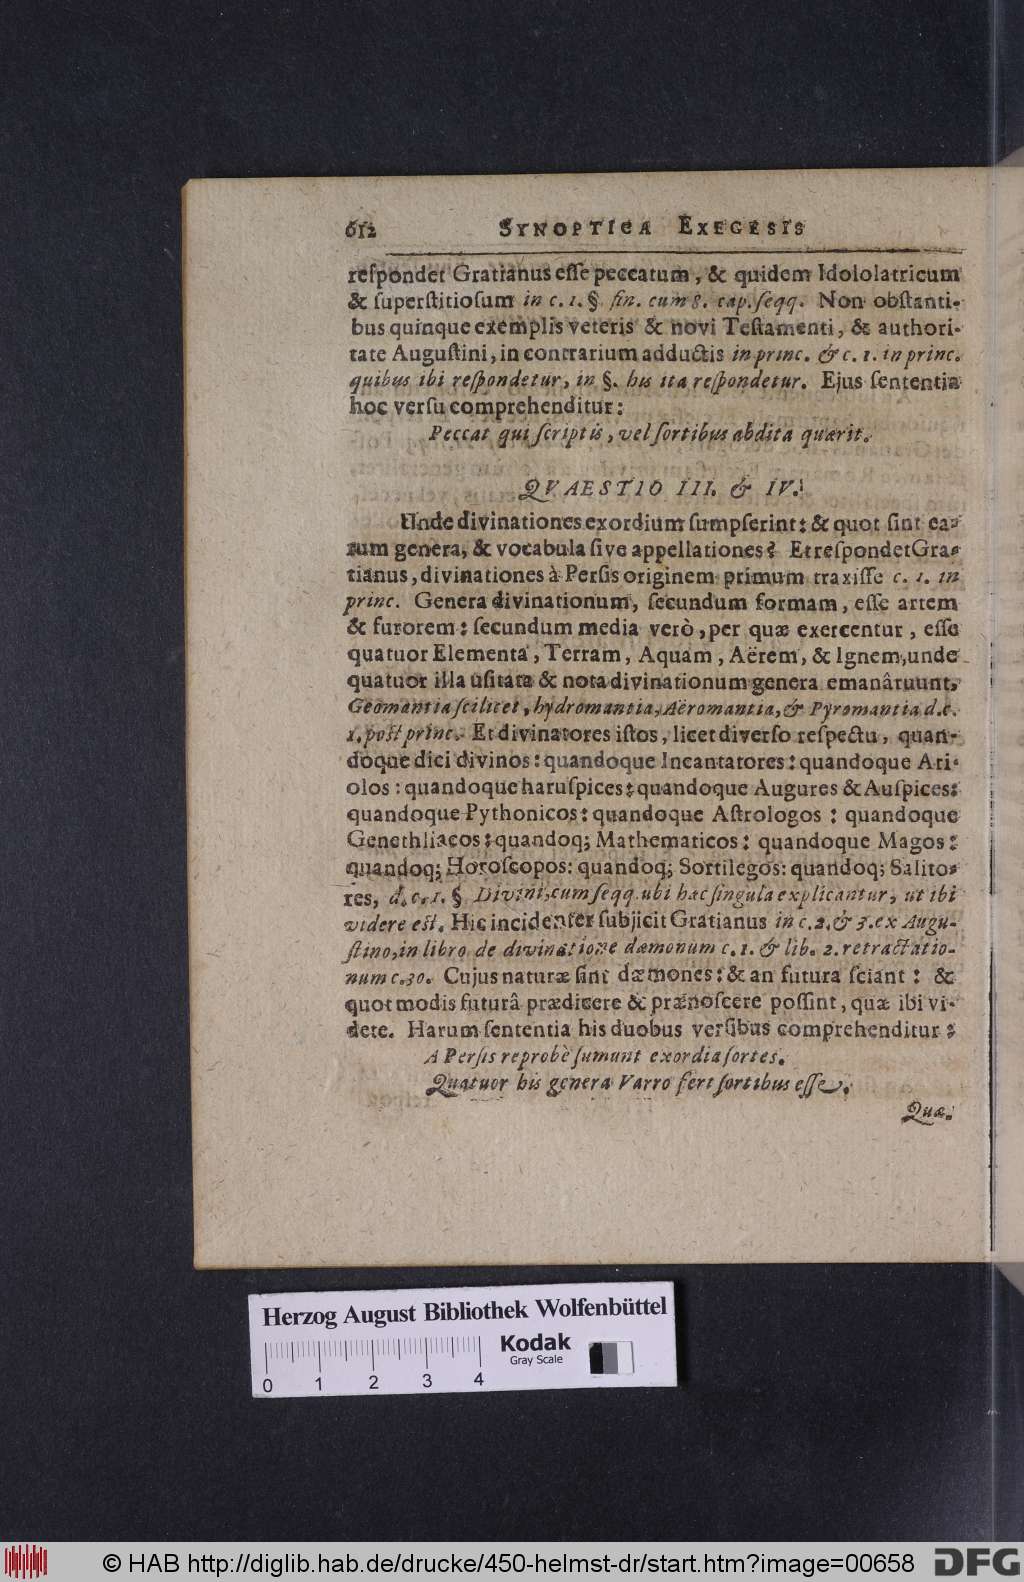 612 SYNOPTICA EXEGESIS
reſpondet Gratianus eſſe peccatum, & quidem Idololatricum
& ſuperſtitioſum in c. 1. §. fin. cum 8. cap. ſeqq. Non obſtanti-
bus quinque exemplis veteris & novi Teſtamenti, & authori-
tate Auguſtini, in contrarium adductis in princ. & c. 1. in princ.
quibus ibi reſpondetur, in §. his ita reſpondetur. Ejus ſententia
hoc verſu comprehenditur:
Peccat qui ſcriptis, vel ſortibus abdita quærit.
QVAESTIO III. & IV.
Unde divinationes exordium ſumpſerint: & quot ſint ea-
rum genera, & vocabula ſive appellationes? Et reſpondet Gra-
tianus, divinationes à Perſis originem primum traxiſſe c. 1. in
princ. Genera divinationum, ſecundum formam, eſſe artem
& furorem: ſecundum media verò, per quæ exercentur, eſſe
quatuor Elementa, Terram, Aquam, Aërem, & Ignem, unde
quatuor illa uſitata & nota divinationum genera emanâruunt,
Geomantia ſcilicet, hydromantia, Aëromantia, & Pyromantia d. c.
1. poſt princ. Et divinatores iſtos, licet diverſo reſpectu, quan-
doque dici divinos: quandoque Incantatores: quandoque Ari-
olos: quandoque haruſpices: quandoque Augures & Auſpices:
quandoque Pythonicos: quandoque Aſtrologos: quandoque
Genethliacos: quandoq; Mathematicos: quandoque Magos:
quandoq; Horoſcopos: quandoq; Sortilegos: quandoq; Salito-
res, d. c. 1. § Divini, cum ſeqq. ubi hæc ſingula explicantur, ut ibi
videre eſt. Hic incidenter ſubjicit Gratianus in c. 2. & 3. ex Augu-
ſtino, in libro de divinatione dæmonum c. 1. & lib. 2. retractatio-
num c. 30. Cujus naturæ ſint dæmones: & an futura ſciant: &
quot modis futurâ prædicere & prænoſcere poſſint, quæ ibi vi-
dete. Harum ſententia his duobus verſibus comprehenditur:
A Perſis reprobè ſumunt exordia ſortes.
Quatuor his genera Varro fert ſortibus eſſe.
Quæ.
Herzog August Bibliothek Wolfenbüttel
Kodak
Gray Scale
0 1 2 3 4
© HAB http://diglib.hab.de/drucke/450-helmst-dr/start.htm?image=00658 DFG